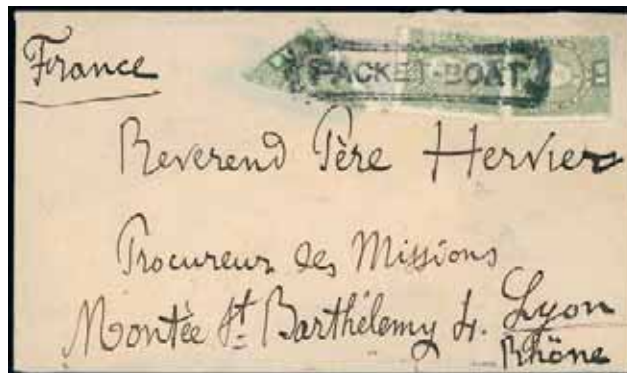 France
PACKET-BOAT
Reverend Père Hervier
Procureur des Missions
Montée St Barthélemy 4. Lyon
Rhône